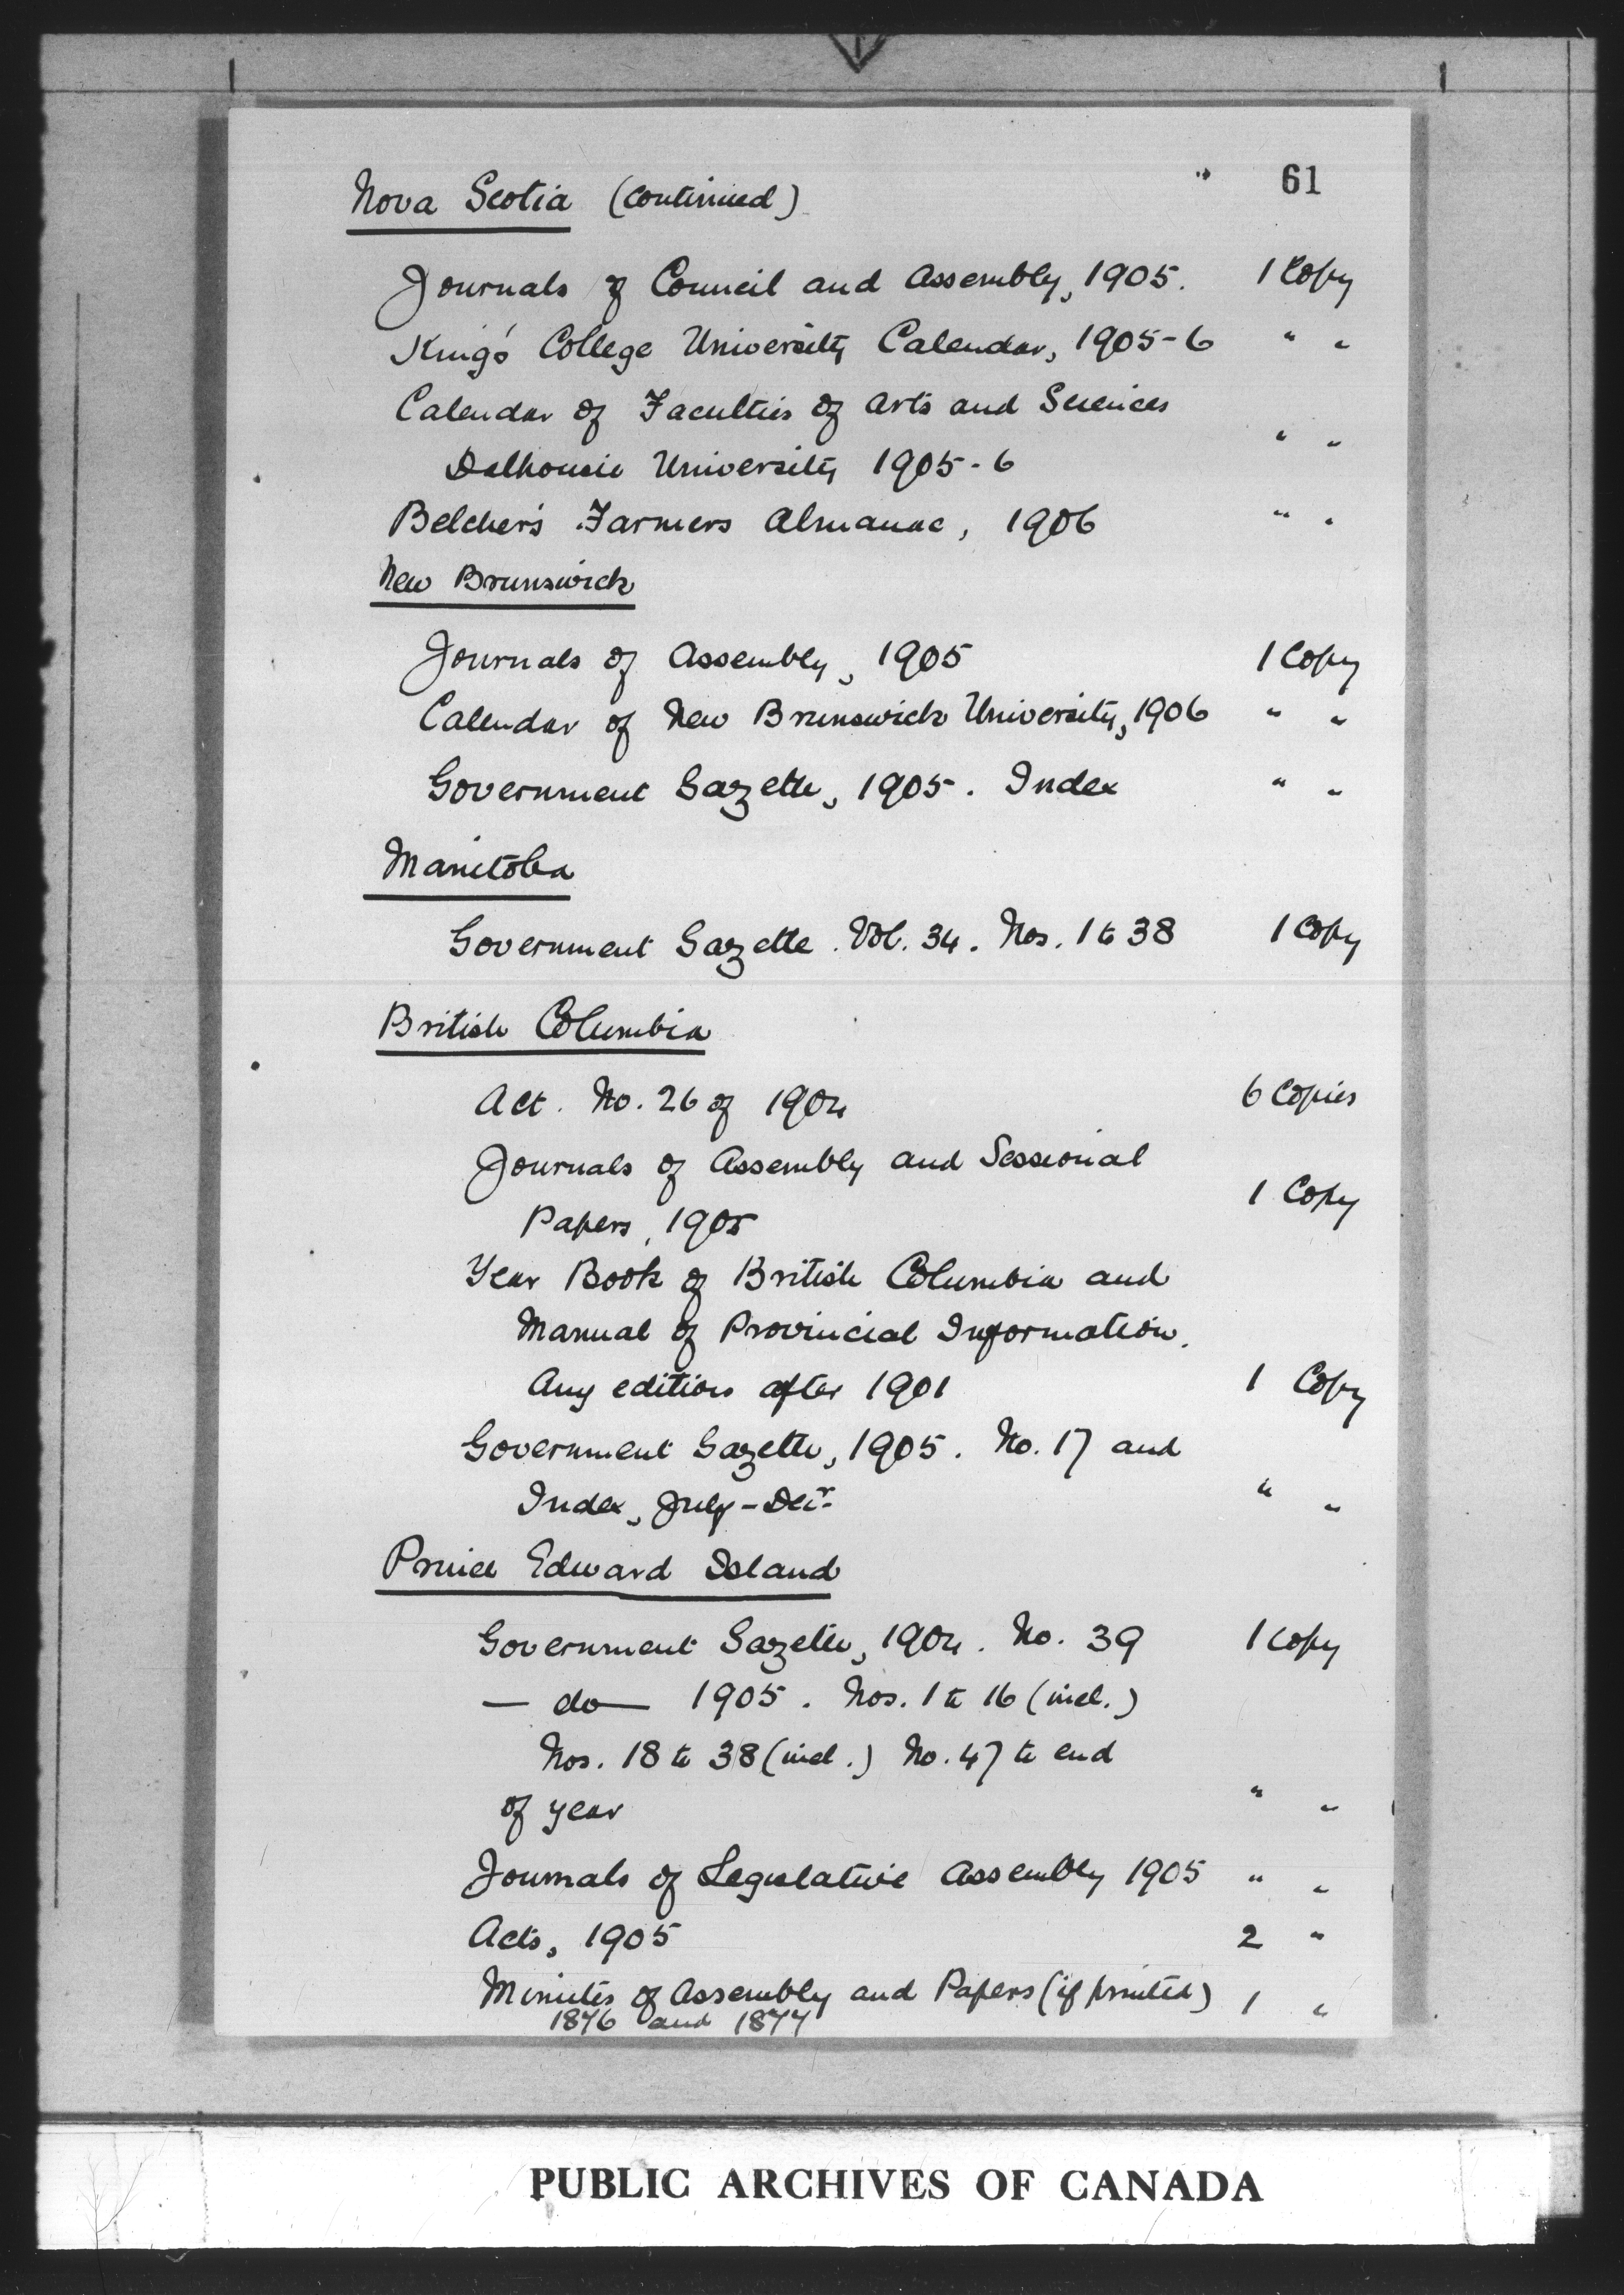 61
Nova Scotia (continued)
Journals of Council and Assembly, 1905. 1 Copy
King's College University Calendar, 1905-6 " "
Calendar of Faculties of Arts and Sciences
Dalhousie University 1905-6 " "
Belcher's Farmers Almanac, 1906 " "
New Brunswick
Journals of Assembly, 1905 1 Copy
Calendar of New Brunswick University, 1906 " "
Government Gazette, 1905. Index " "
Manitoba
Government Gazette. Vol. 34. Nos. 1 to 38 1 Copy
British Columbia
Act. No. 26 of 1904 6 Copies
Journals of Assembly and Sessional
Papers, 1905 1 Copy
Year Book of British Columbia and
Manual of Provincial Information.
Any edition after 1901 1 Copy
Government Gazette, 1905. No. 17 and
Index, July - Decr. " "
Prince Edward Island
Government Gazette, 1904. No. 39 1 Copy
— do — 1905. Nos. 1 to 16 (incl.)
Nos. 18 to 38 (incl.) No. 47 to end
of year " "
Journals of Legislative Assembly 1905 " "
Acts, 1905 2 "
Minutes of Assembly and Papers (if printed) 1 "
1876 and 1877
PUBLIC ARCHIVES OF CANADA